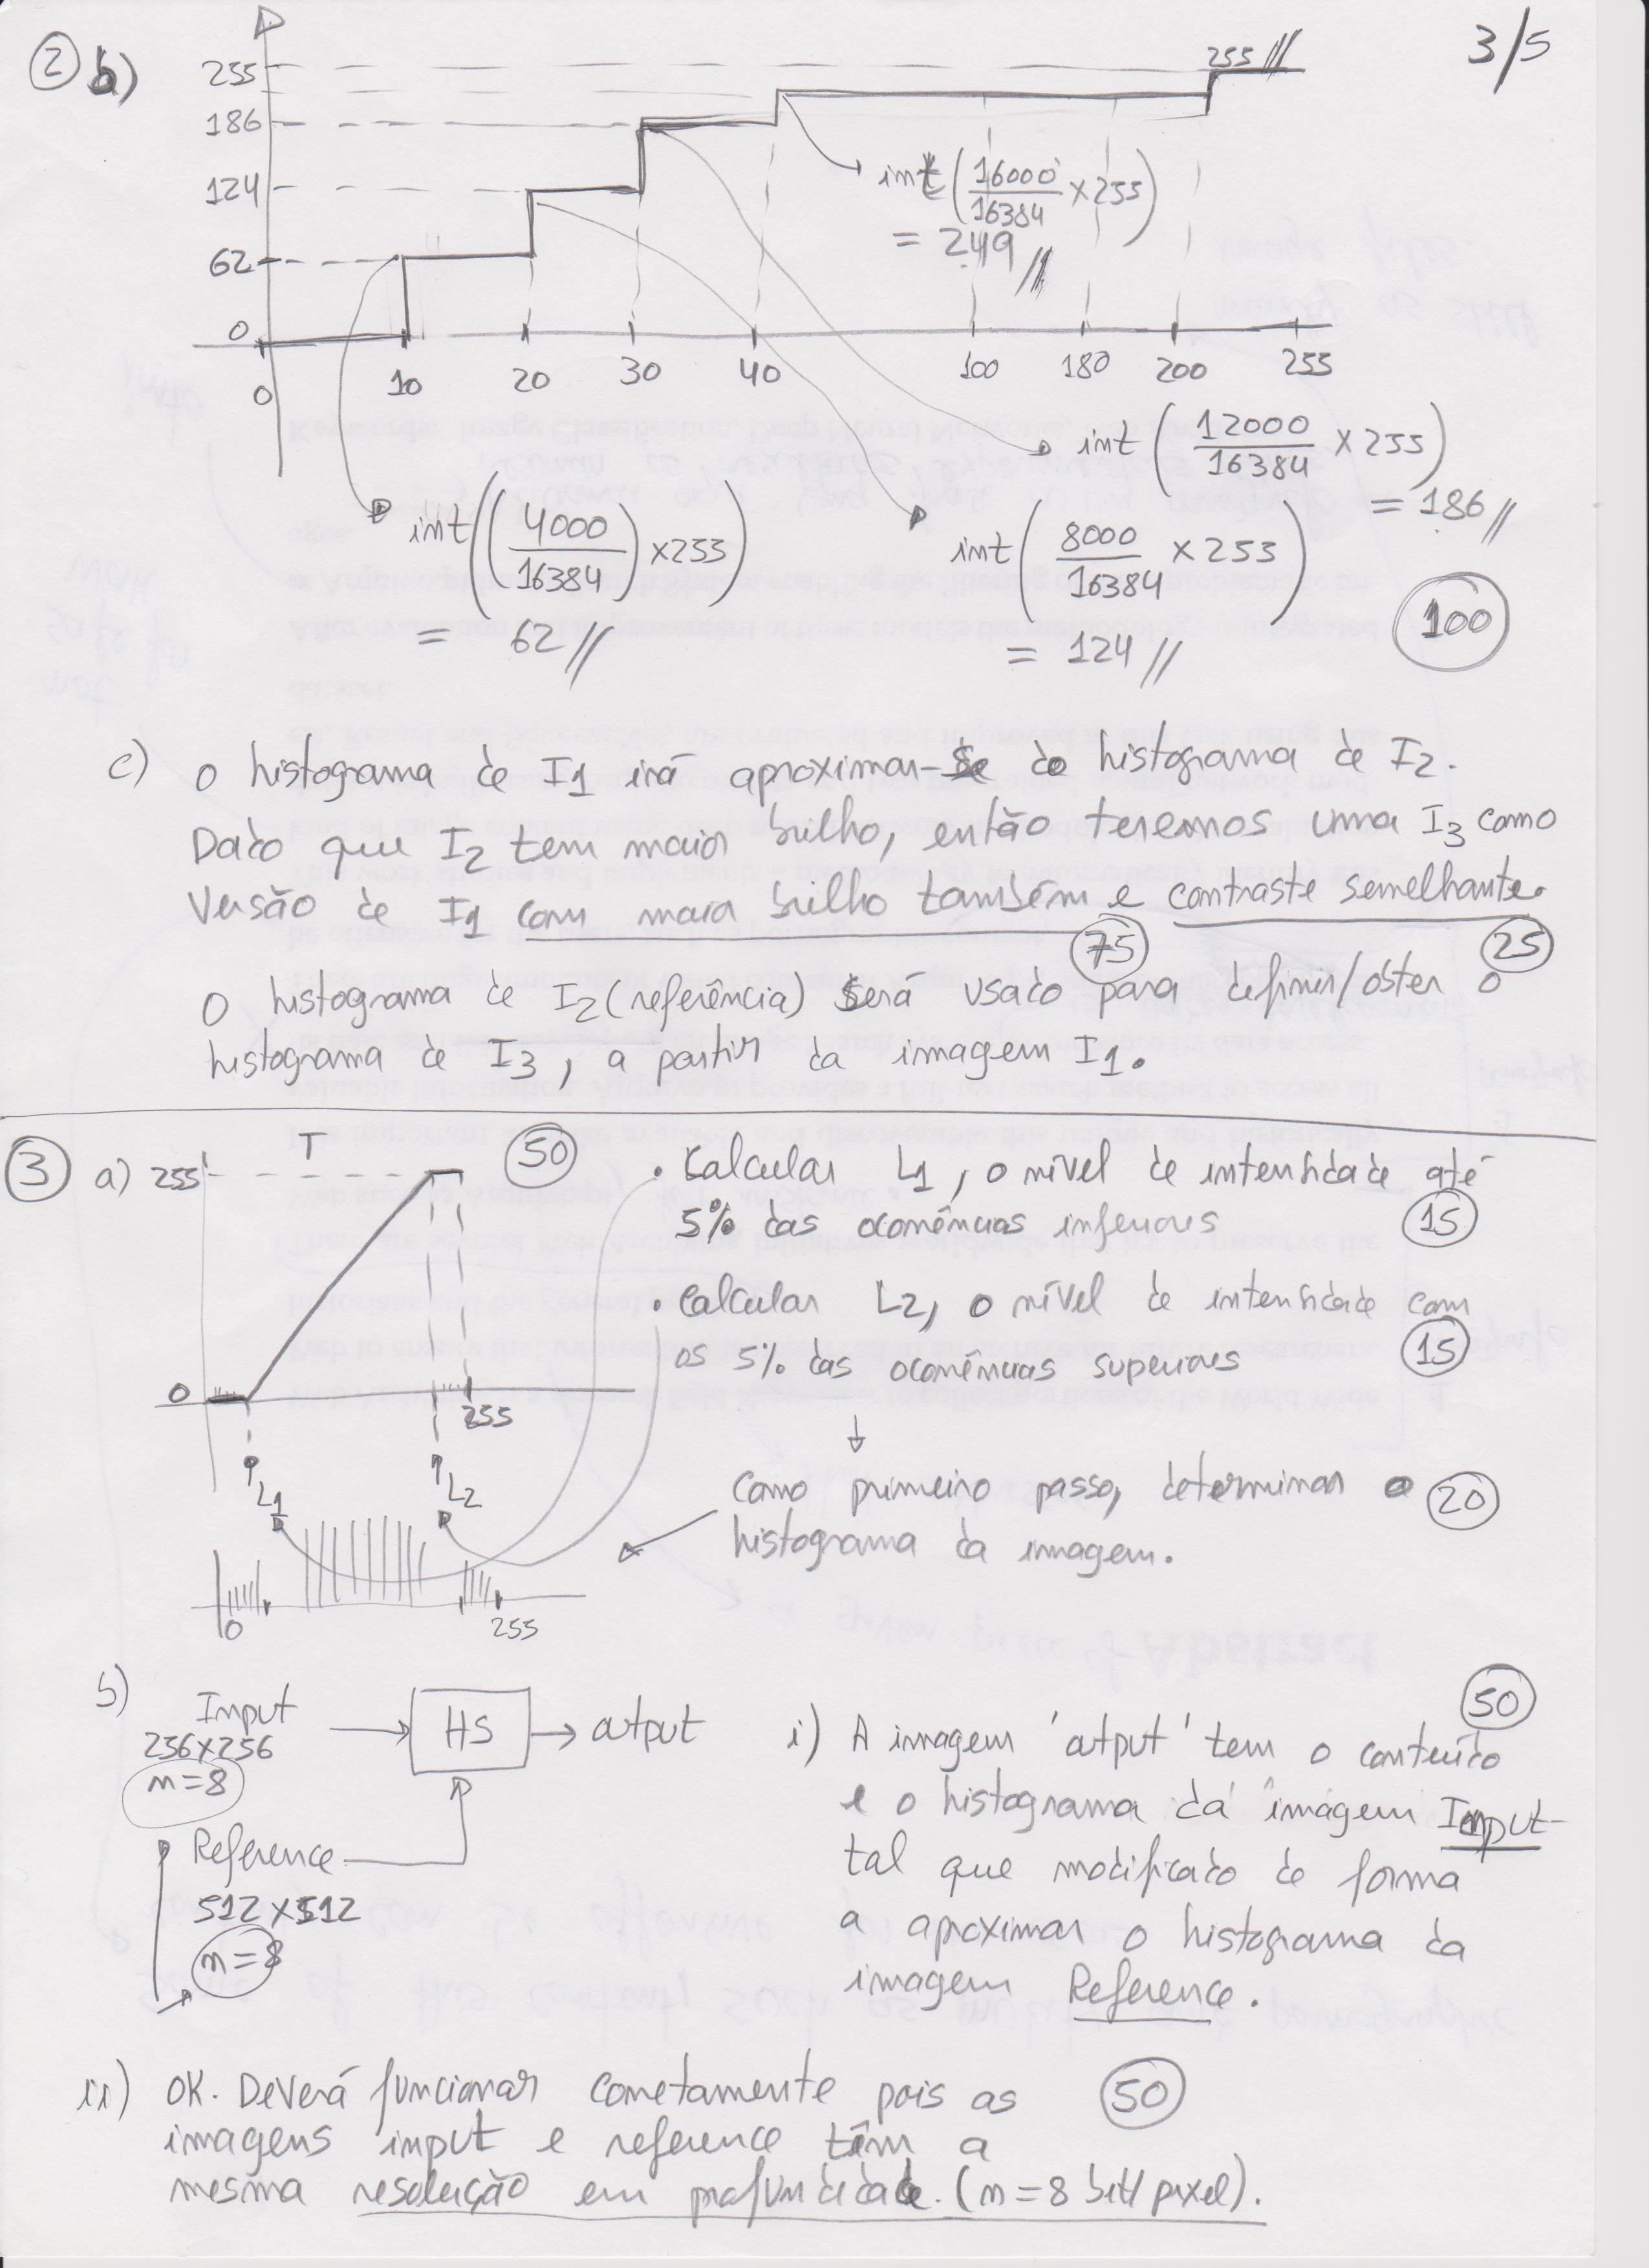 3/5
② b)
255
186
124
62
0
255 //
0 10 20 30 40 100 180 200 255
int(16000/16384 × 255)
= 249 //
int(12000/16384 × 255)
= 186 //
int((4000/16384) × 255)
= 62 //
int(8000/16384 × 255)
= 124 //
100
c) O histograma de I1 irá aproximar-se do histograma de I2.
Dado que I2 tem maior brilho, então teremos uma I3 como
versão de I1 com maior brilho também e contraste semelhante.
75
25
O histograma de I2 (referência) será usado para definir/obter o
histograma de I3, a partir da imagem I1.
③ a) 255 T 50
0 255
L1 L2
0 255
• Calcular L1, o nível de intensidade até
5% das ocorrências inferiores 15
• Calcular L2, o nível de intensidade com
os 5% das ocorrências superiores 15
Como primeiro passo, determinar o 20
histograma da imagem.
b) Input
256x256
n=8
HS
output
Reference
512x512
n=8
50
i) A imagem 'output' tem o conteúdo
e o histograma da imagem Input
tal que modificado de forma
a aproximar o histograma da
imagem Reference.
ii) OK. Deverá funcionar corretamente pois as 50
imagens input e reference têm a
mesma resolução em profundidade. (n=8 bit/pixel).